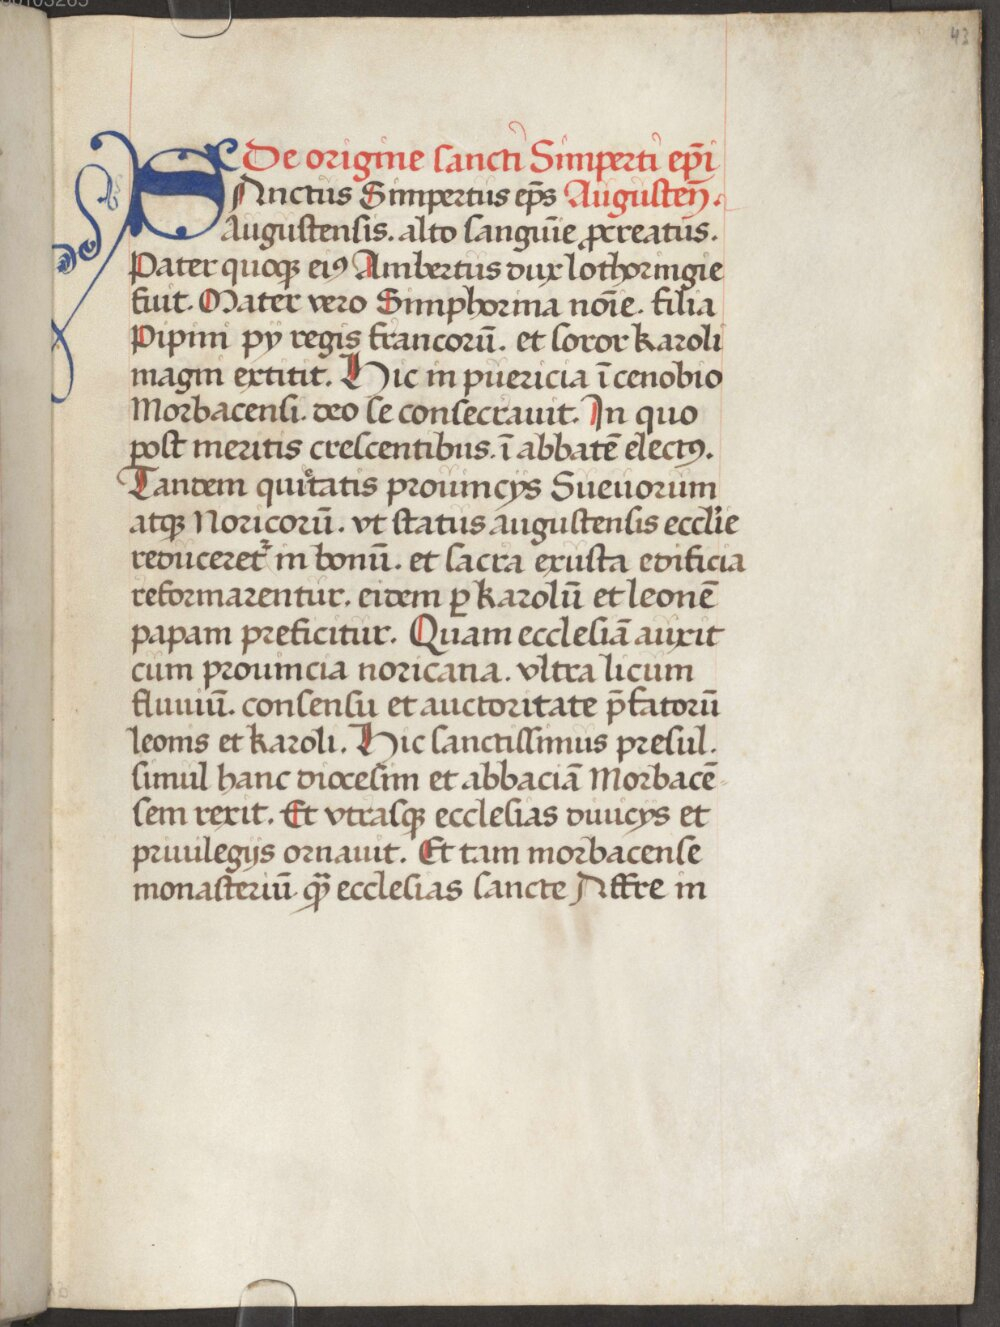 43
De origine sancti Simperti ep̄i
SAnctus Simpertus ep̄s Augusten̄.
Augustensis. alto sanguīe ꝓcreatus.
Pater quoqꝫ eiꝰ Ambertus dux lothoringie
fuit. Mater vero Simphorina noīe. filia
Pipini pij regis francorū. et soror karoli
magni extitit. Hic in puericia ī cenobio
Morbacensi. deo se consecrauit. In quo
post meritis crescentibus. ī abbatē electꝰ.
Tandem quiritatis prouincijs Sueuorum
atqꝫ Noricorū. vt status augustensis eccl̄ie
reduceret᷑ in bonū. et sacra exusta edificia
reformarentur. eidem ꝑ karolū et leonē
papam preficitur. Quam ecclesiā auxit
cum prouincia noricana. vltra licum
fluuiū. consensu et auctoritate p̄fatorū
leonis et karoli. Hic sanctissimus presul.
simul hanc diocesim et abbaciā Morbacē-
sem rexit. Et vtrasqꝫ ecclesias diuicijs et
priuilegijs ornauit. Et tam morbacense
monasteriū qꝫ̄ ecclesias sancte Affre in